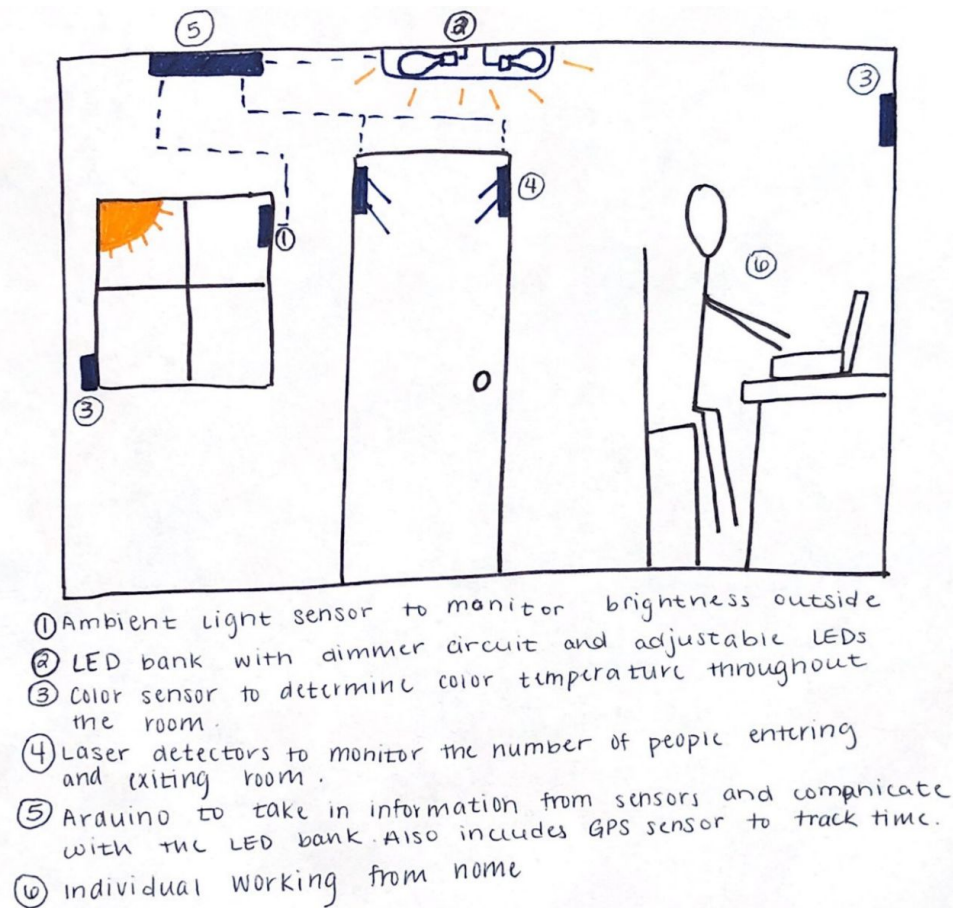 ⑤
②
③
④
①
⑥
③
① Ambient light sensor to monitor brightness outside
② LED bank with dimmer circuit and adjustable LEDs
③ Color sensor to determine color temperature throughout
the room.
④ Laser detectors to monitor the number of people entering
and exiting room.
⑤ Arduino to take in information from sensors and compnicate
with the LED bank. Also includes GPS sensor to track time.
⑥ Individual working from home